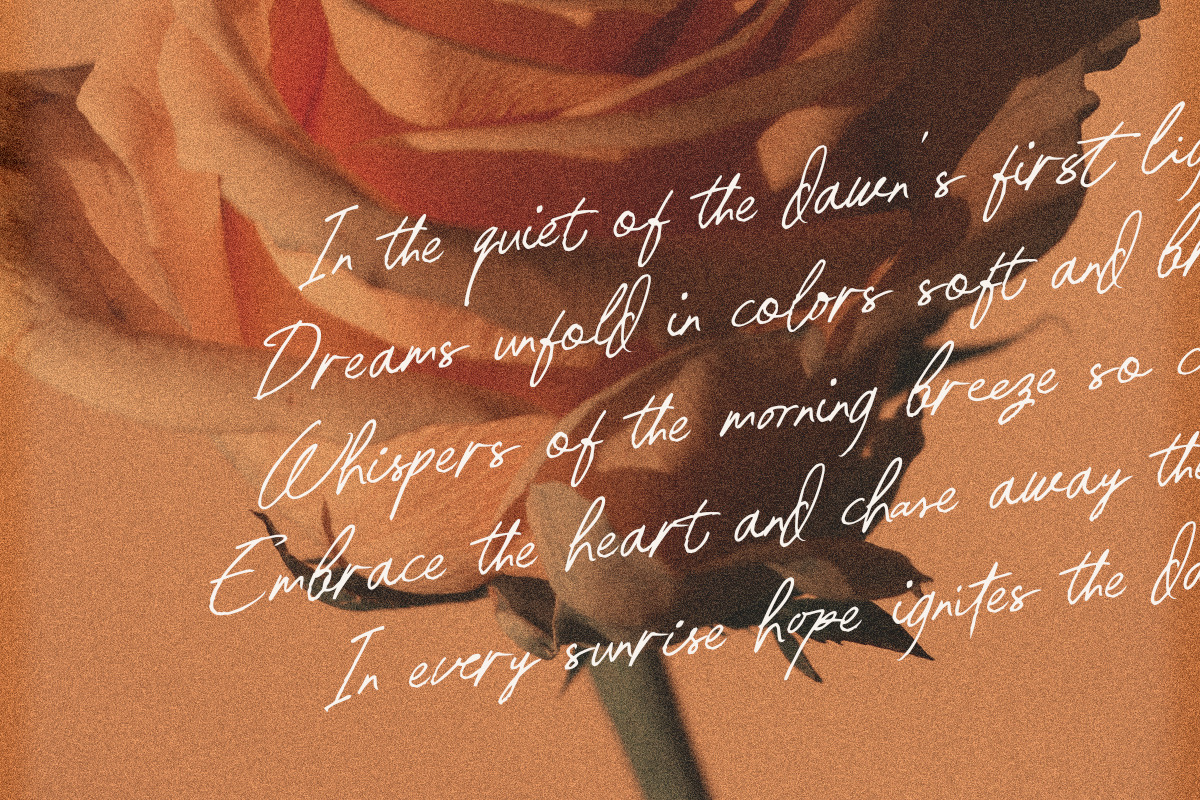 In the quiet of the dawn's first lig
Dreams unfold in colors soft and br
Whispers of the morning breeze so c
Embrace the heart and chase away the
In every sunrise hope ignites the da